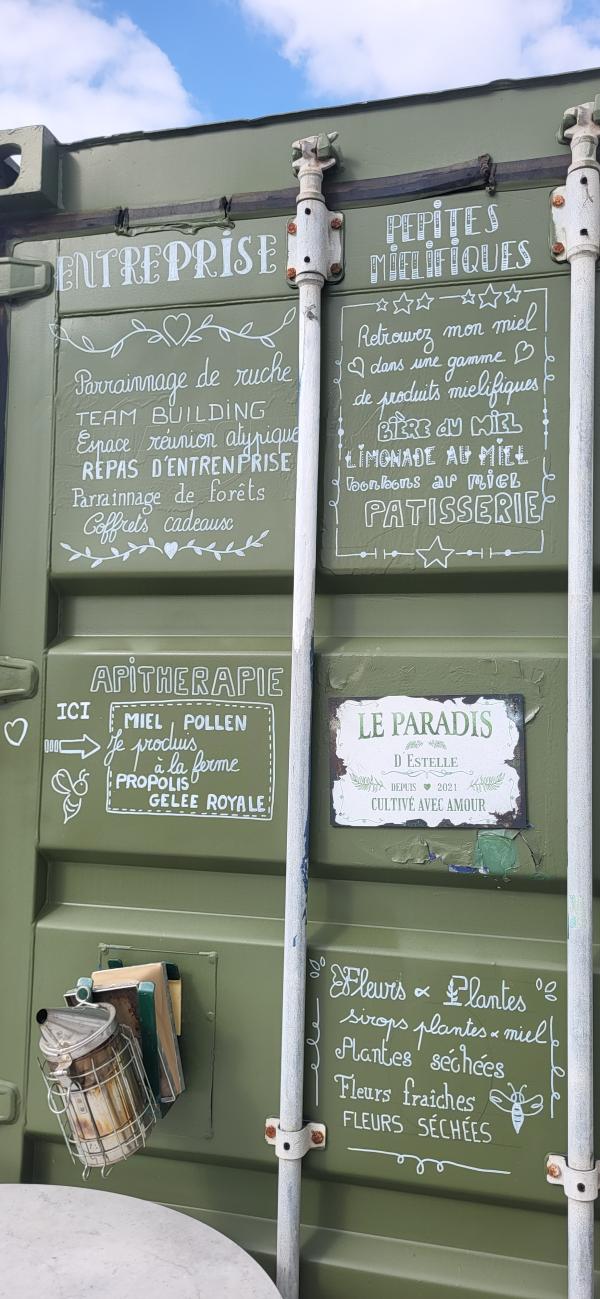 ENTREPRISE
Parrainnage de ruche
TEAM BUILDING
Espace réunion atypique
REPAS D'ENTRENPRISE
Parrainage de forêts
Coffrets cadeaux
PEPITES
MIELIFIQUES
Retrouvez mon miel
dans une gamme
de produits mielifiques
BIÈRE DU MIEL
LIMONADE AU MIEL
bonbons au MIEL
PATISSERIE
APITHERAPIE
ICI
MIEL POLLEN
Je produis
à la ferme
PROPOLIS
GELEE ROYALE
LE PARADIS
D'ESTELLE
DEPUIS 2021
CULTIVÉ AVEC AMOUR
Fleurs & Plantes
sirops plantes & miel
Plantes séchées
Fleurs fraîches
FLEURS SÉCHÉES